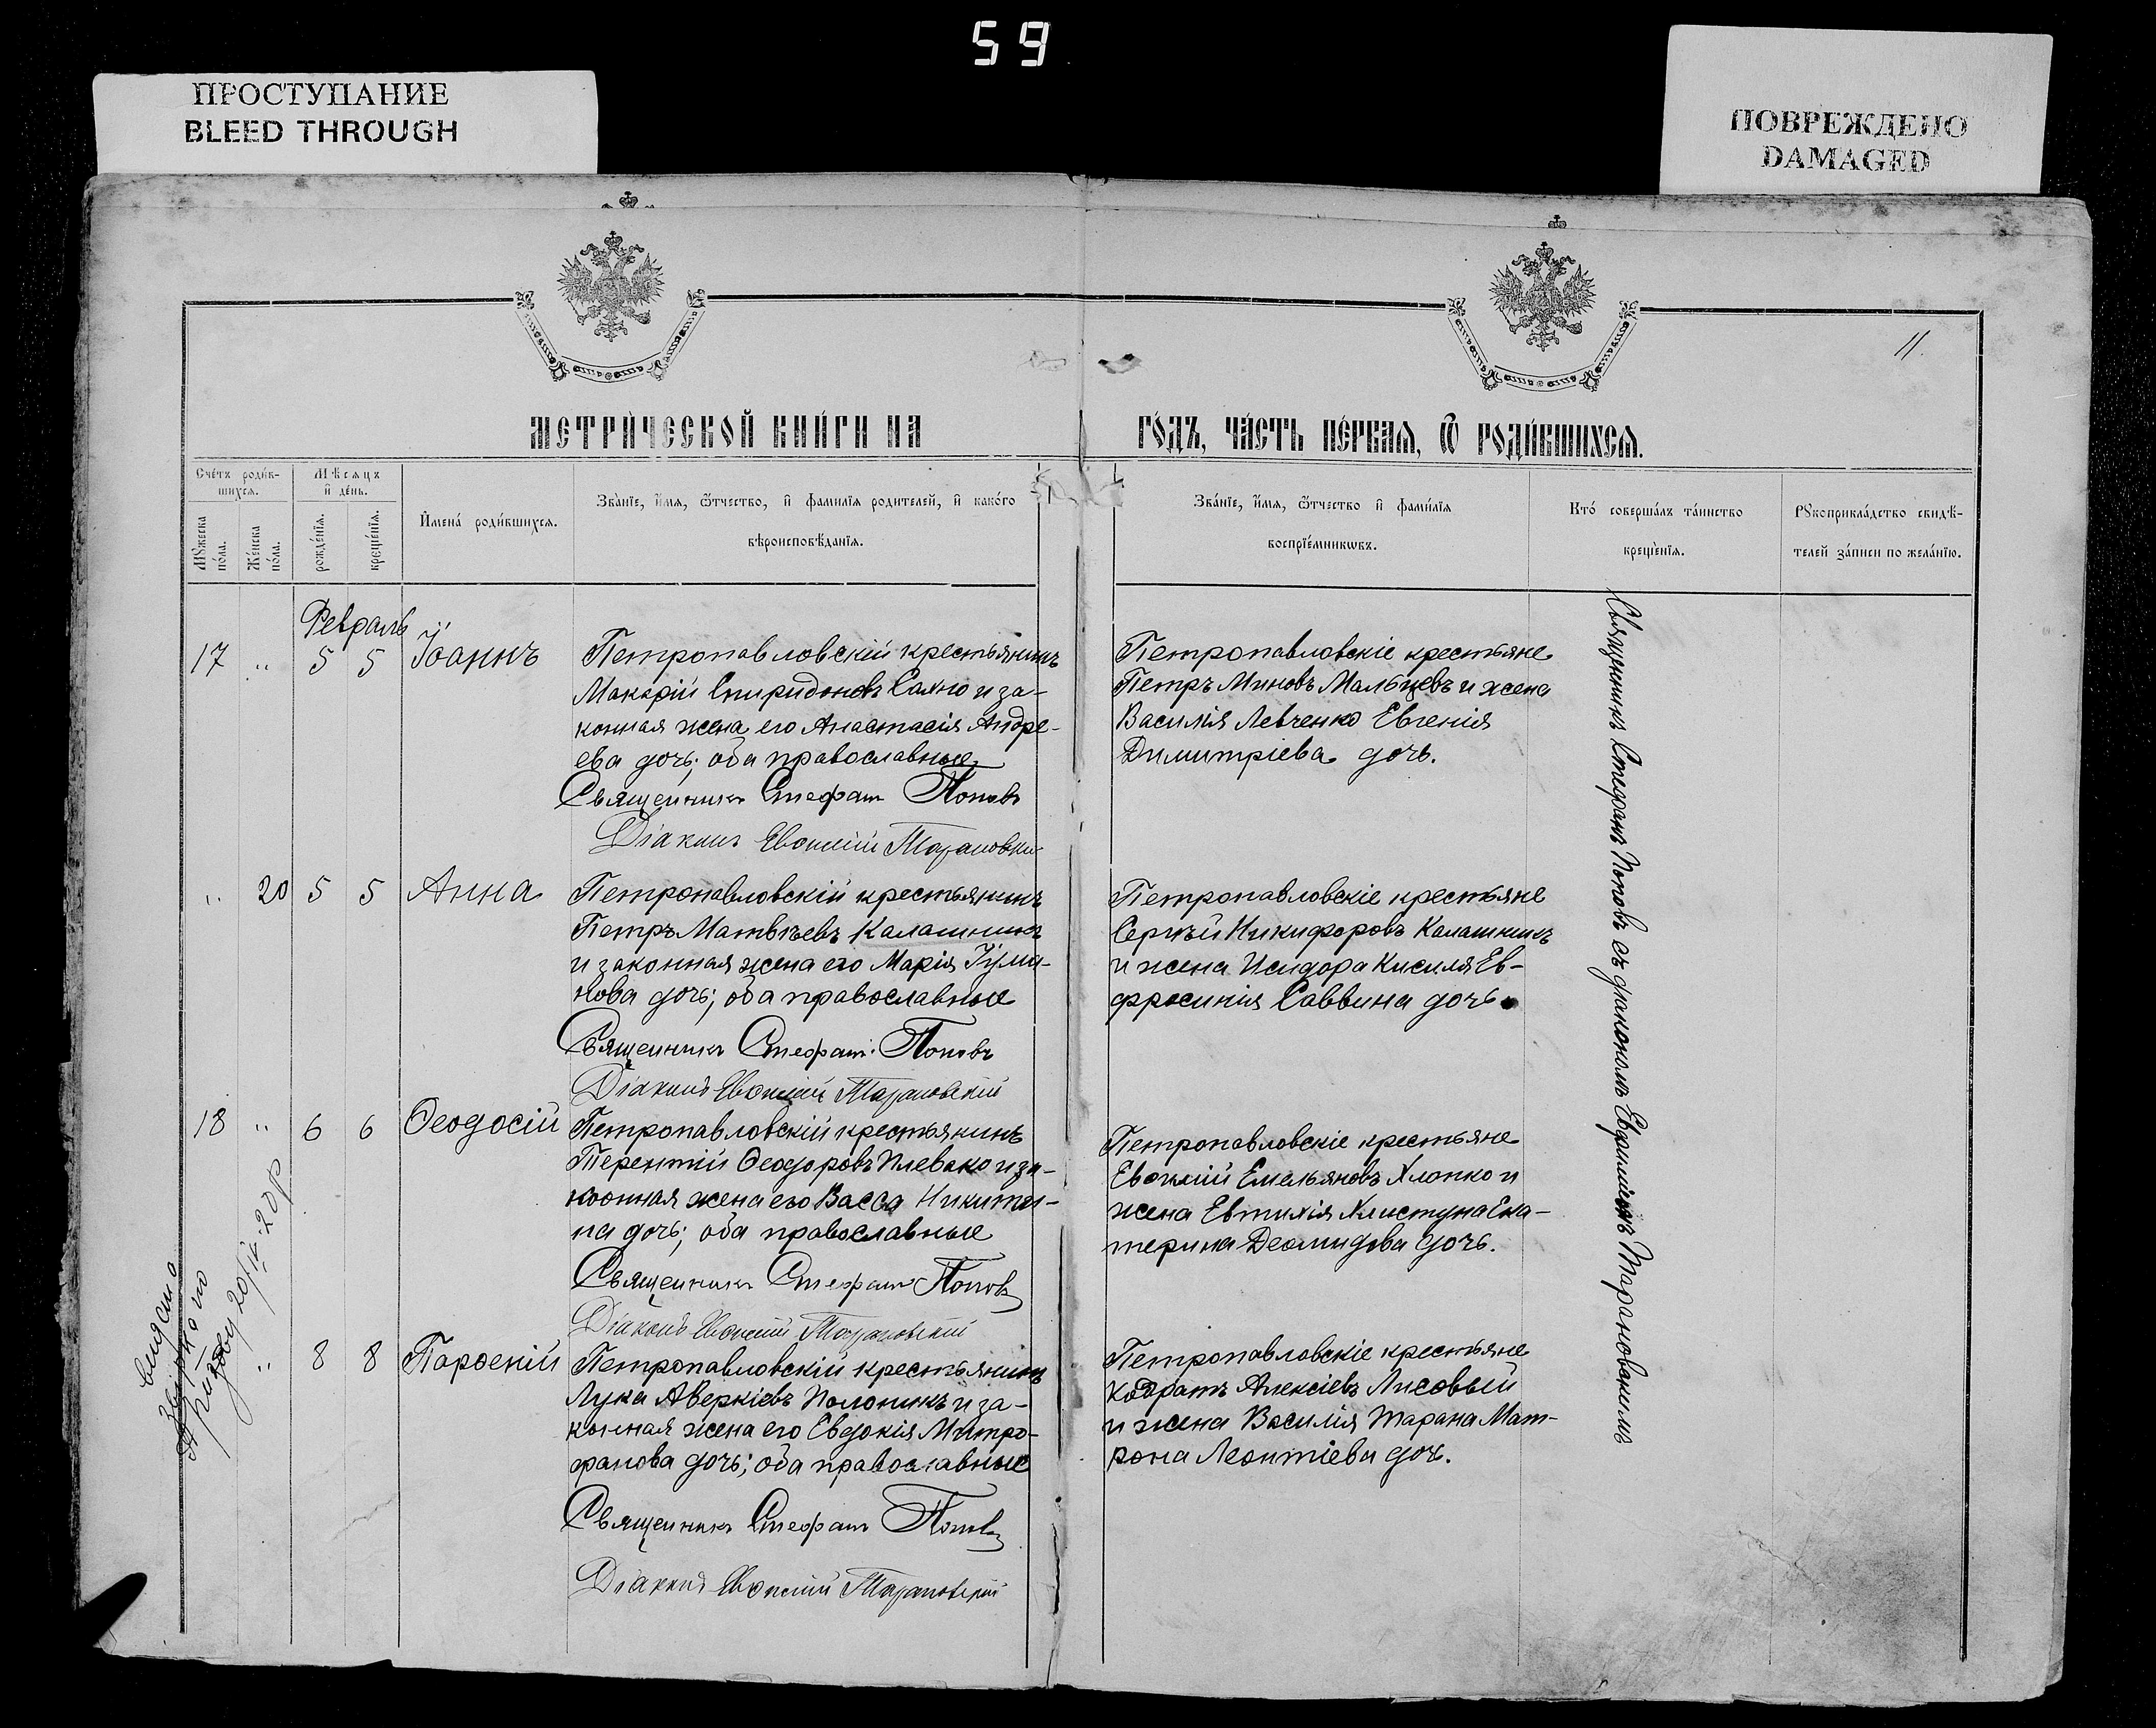 59
ПРОСТУПАНИЕ
BLEED THROUGH
ПОВРЕЖДЕНО
DAMAGED
11.
МЕТРИ́ЧЕСКОЙ КНИ́ГИ НА
ГО́ДЪ, ЧА́СТЬ ПЕ́РВАЯ, Ѿ РОДИ́ВШИХСЯ.
Сче́тъ роди́в-
шихся.
Мѣсяцъ
и҆ де́нь.
Мꙋжеска
по́ла.
Же́нска
по́ла.
рожде́нїя.
креще́нїя.
И҆мена́ роди́вшихся.
Зва́нїе, и҆́мя, ѻ҆́тчество, и҆ фами́лїя родителей, и҆ како́го
вѣроисповѣ́данїя.
Зва́нїе, и҆́мя, ѻ҆́тчество и҆ фами́лїя
воспрїе́мникѡвъ.
Кто́ соверша́лъ та́инство
креще́нїя.
Рꙋкоприкла́дство свидѣ́-
телей за́писи по жела́нїю.
Февраль
17 " 5 5 Іоаннъ
Петропавловскій крестьянинъ
Макарій Спиридоновъ Сахно и за-
конная жена его Анастасія Андре-
ева дочь; оба православные
Священникъ Стефанъ Поповъ
Діаконъ Евѳимій Тарановскій
Петропавловскіе крестьяне
Петръ Миновъ Мальцевъ и жена
Василія Левченко Евгенія
Димитріева дочь.
" 20 5 5 Анна
Петропавловскій крестьянинъ
Петръ Матвѣевъ Калашникъ
и законная жена его Марія Іулиа-
нова дочь; оба православные
Священникъ Стефанъ Поповъ
Діаконъ Евѳимій Тарановскій
Петропавловскіе крестьяне
Сергѣй Никифоровъ Калашникъ
и жена Исидора Киселя Ев-
фросинія Саввина дочь.
18 " 6 6 Ѳеодосій
Петропавловскій крестьянинъ
Терентій Ѳеодоровъ Плевако и за-
конная жена его Васса Никити-
на дочь; оба православные
Священникъ Стефанъ Поповъ
Діаконъ Евѳимій Тарановскій
Петропавловскіе крестьяне
Евѳимій Емельяновъ Хлопко и
жена Евтихія Хлистуна Ека-
терина Деомидова дочь.
" 8 8 Парѳеній
Петропавловскій крестьянинъ
Лука Аверкіевъ Полоникъ и за-
конная жена его Евдокія Митро-
фанова дочь; оба православные
Священникъ Стефанъ Поповъ
Діаконъ Евѳимій Тарановскій
Петропавловскіе крестьяне
Кодратъ Алексіевъ Лисовый
и жена Василія Тарана Мат-
рона Леонтіева дочь.
Священникъ Стефанъ Поповъ съ діакономъ Евѳиміемъ Тарановскимъ